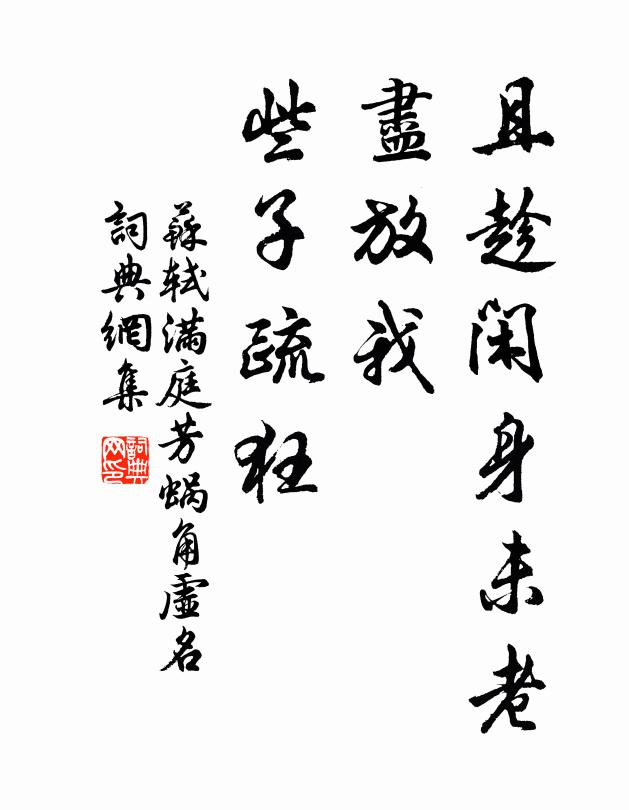 且趁閑身未老
盡放我
些子疏狂
蘇軾滿庭芳蝸角虛名
詞典網集
詞典網印